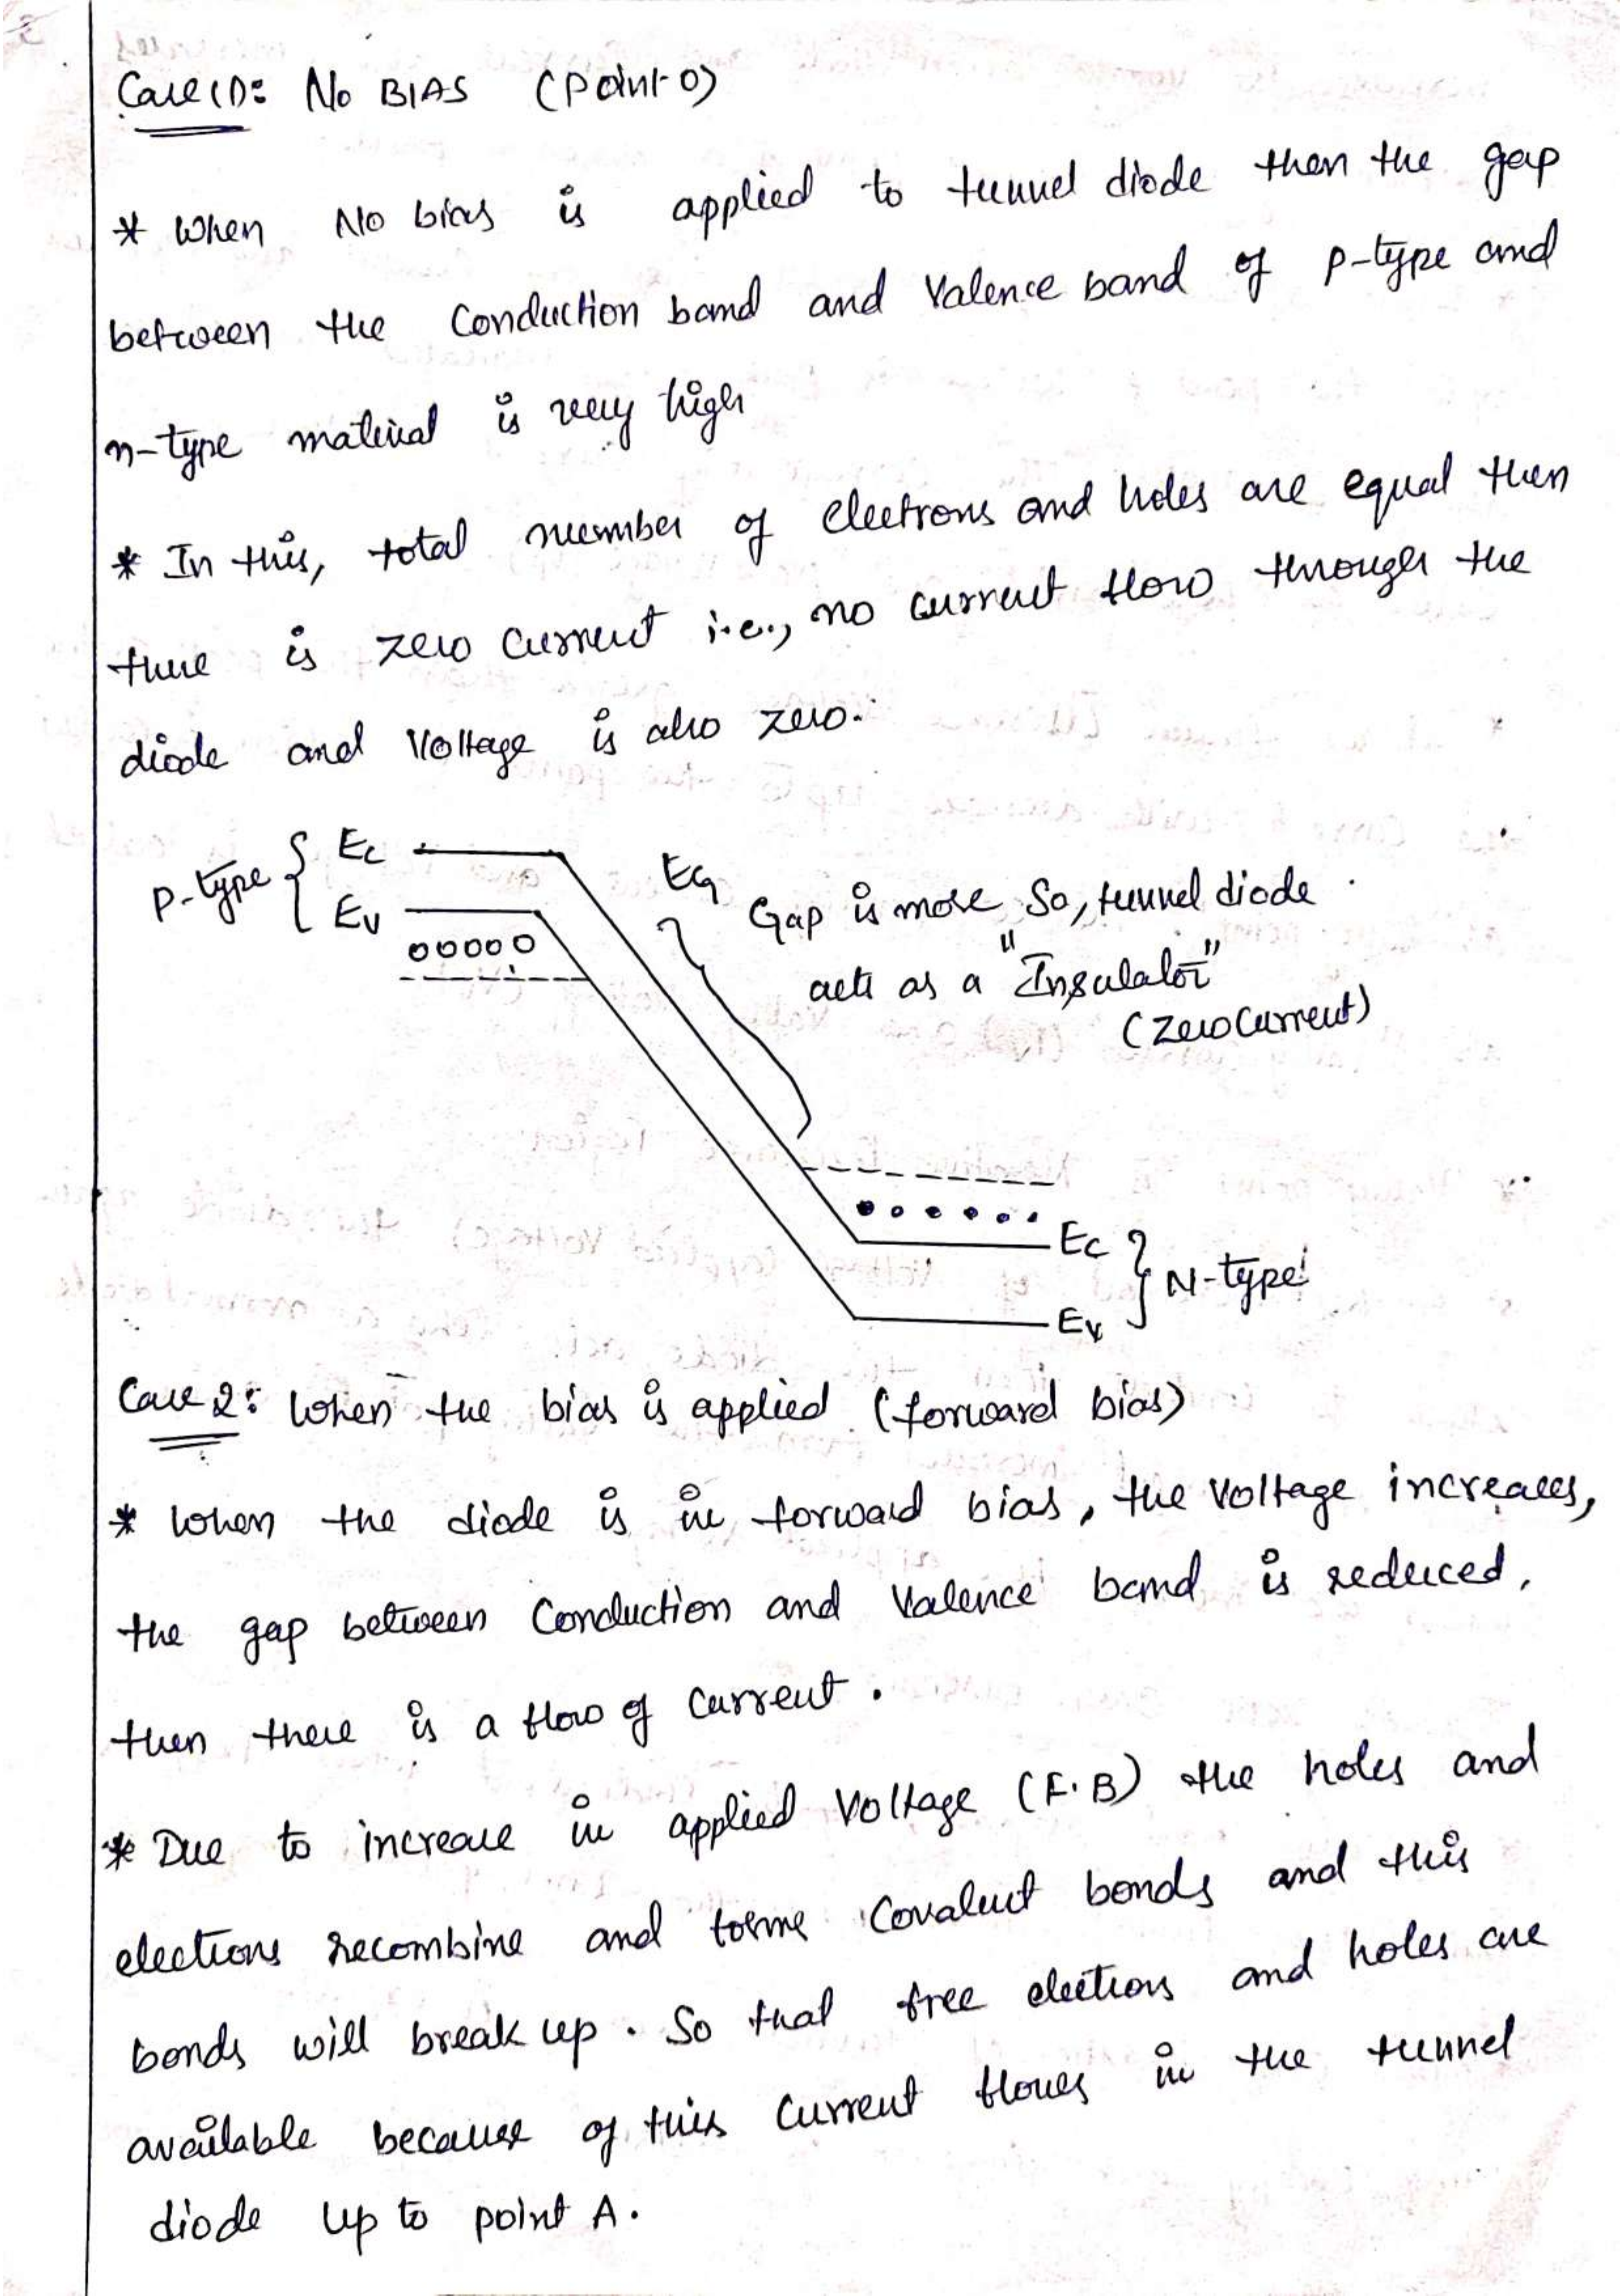 Case (1): No BIAS (Point-0)
* When No bias is applied to tunnel diode then the gap
between the Conduction band and Valence band of P-type and
n-type material is very high
* In this, total number of electrons and holes are equal then
there is zero current i.e., no current flow through the
diode and Voltage is also zero.
P-type { Ec
Ev
EG
Gap is more So, tunnel diode
acts as a "Insulator"
(Zero Current)
Ec } N-type
Ev
Case 2: When the bias is applied (forward bias)
* When the diode is in forward bias, the Voltage increases,
the gap between Conduction and Valence band is reduced.
then there is a flow of Current.
* Due to increase in applied Voltage (F.B) the holes and
elections recombine and forme Covalent bonds and this
bonds will break up. So that free elections and holes are
available because of this Current flowes in the tunnel
diode up to point A.